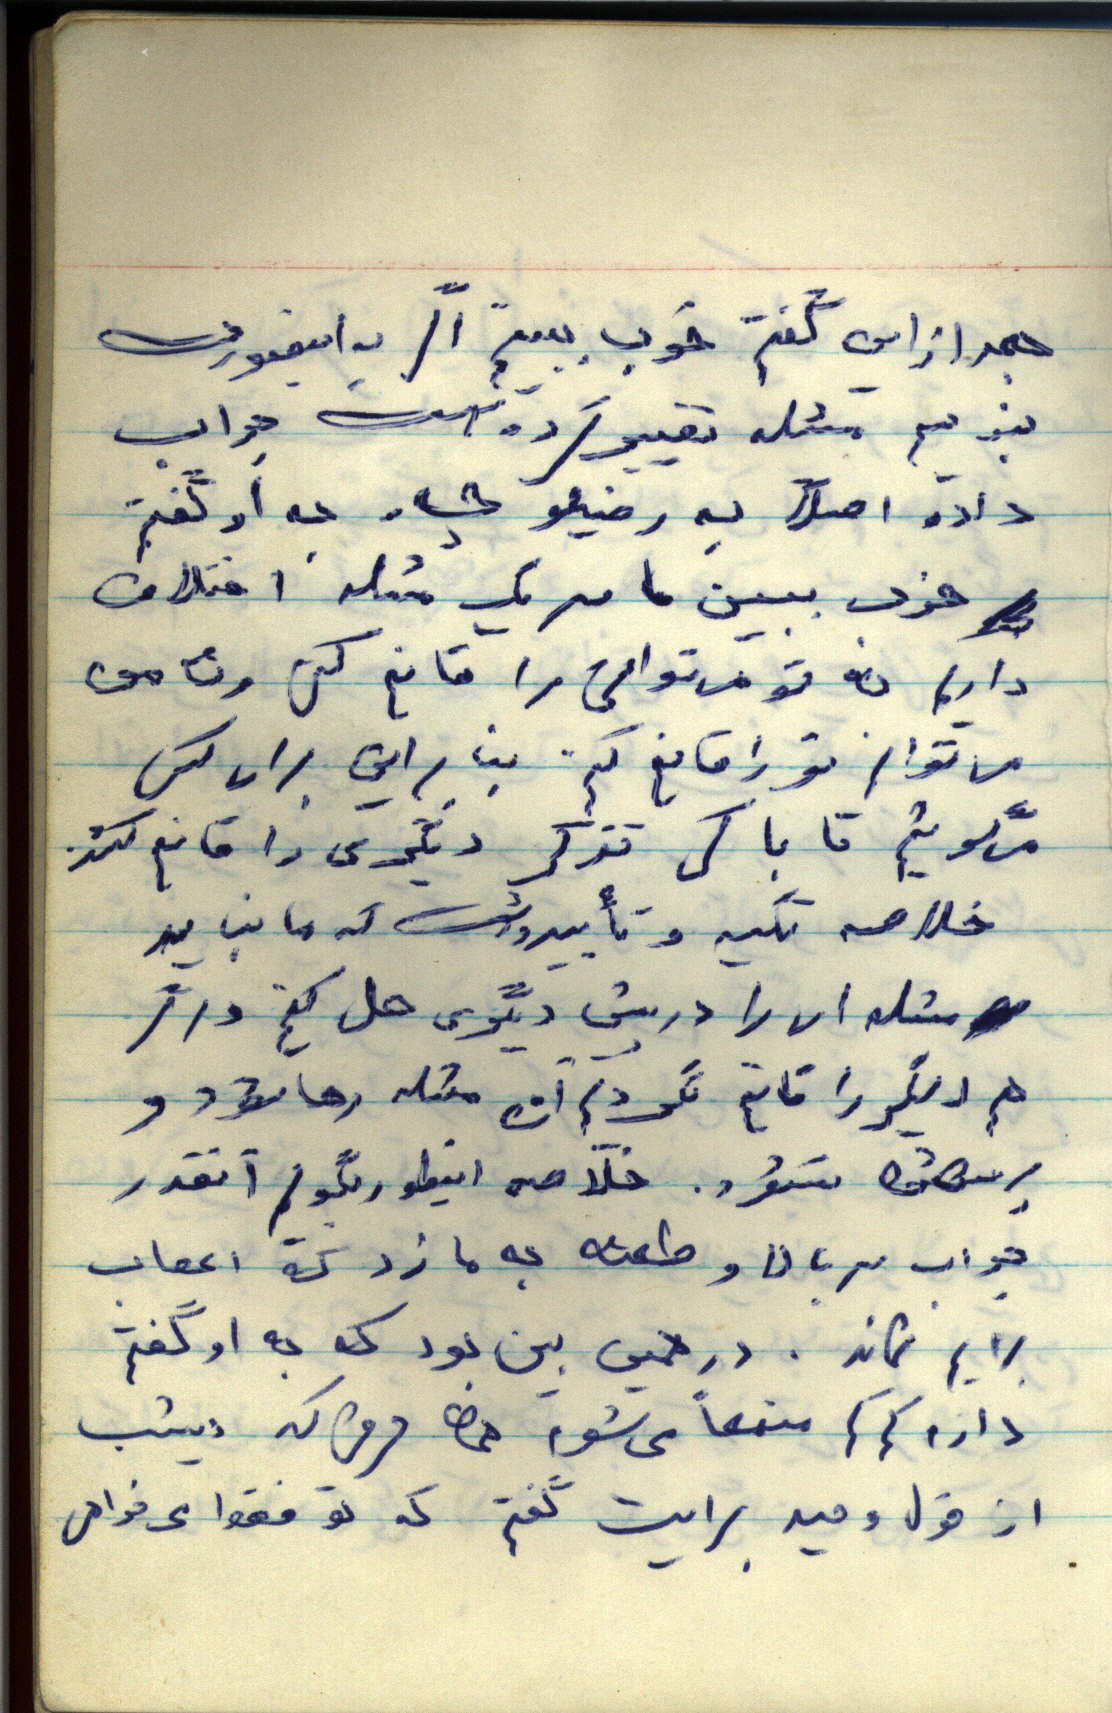 بعد از این گفتم خوب ببینم اگر به اینصورت
بنویسم مسئله تغییر کرده است جواب
داده اصلاً به او گفتم
خوب ببین ما سر یک مسئله اختلاف
داریم نه تو می‌توانی مرا قانع کنی و نه من
می‌توانم تو را قانع کنم. بنابراین برای کس
می‌گوئیم تا با کس دیگری را قانع کند.
خلاصه تکیه و تأیید داشت که ما نباید
مسئله‌ای را در پیش دیگری حل کنیم و اگر
همدیگر را قانع نکردیم آن مسئله رها شود و
نشود. خلاصه اینطور بگویم آنقدر
جواب سربالا و طعنه به ما زد که اعصاب
برایم نماند. در همین بین بود که به او گفتم
داره کم کم می‌شود همان حرفی که دیشب
از قول وحید برایت گفتم که تو فقط می‌خواهی